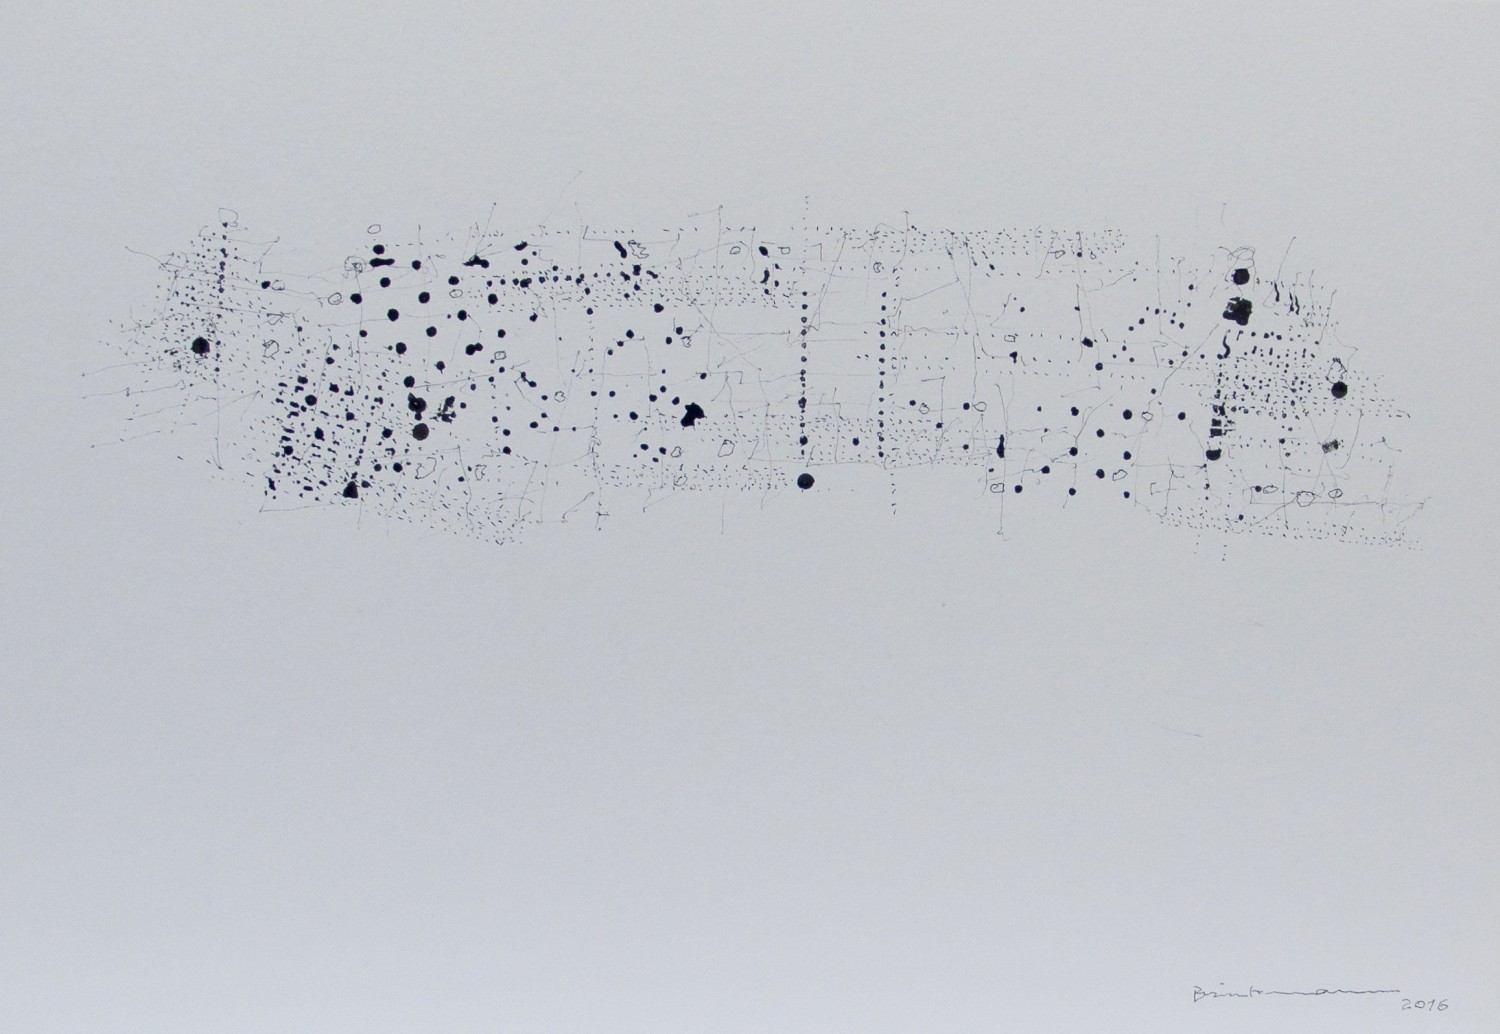 Brinkmann
2016